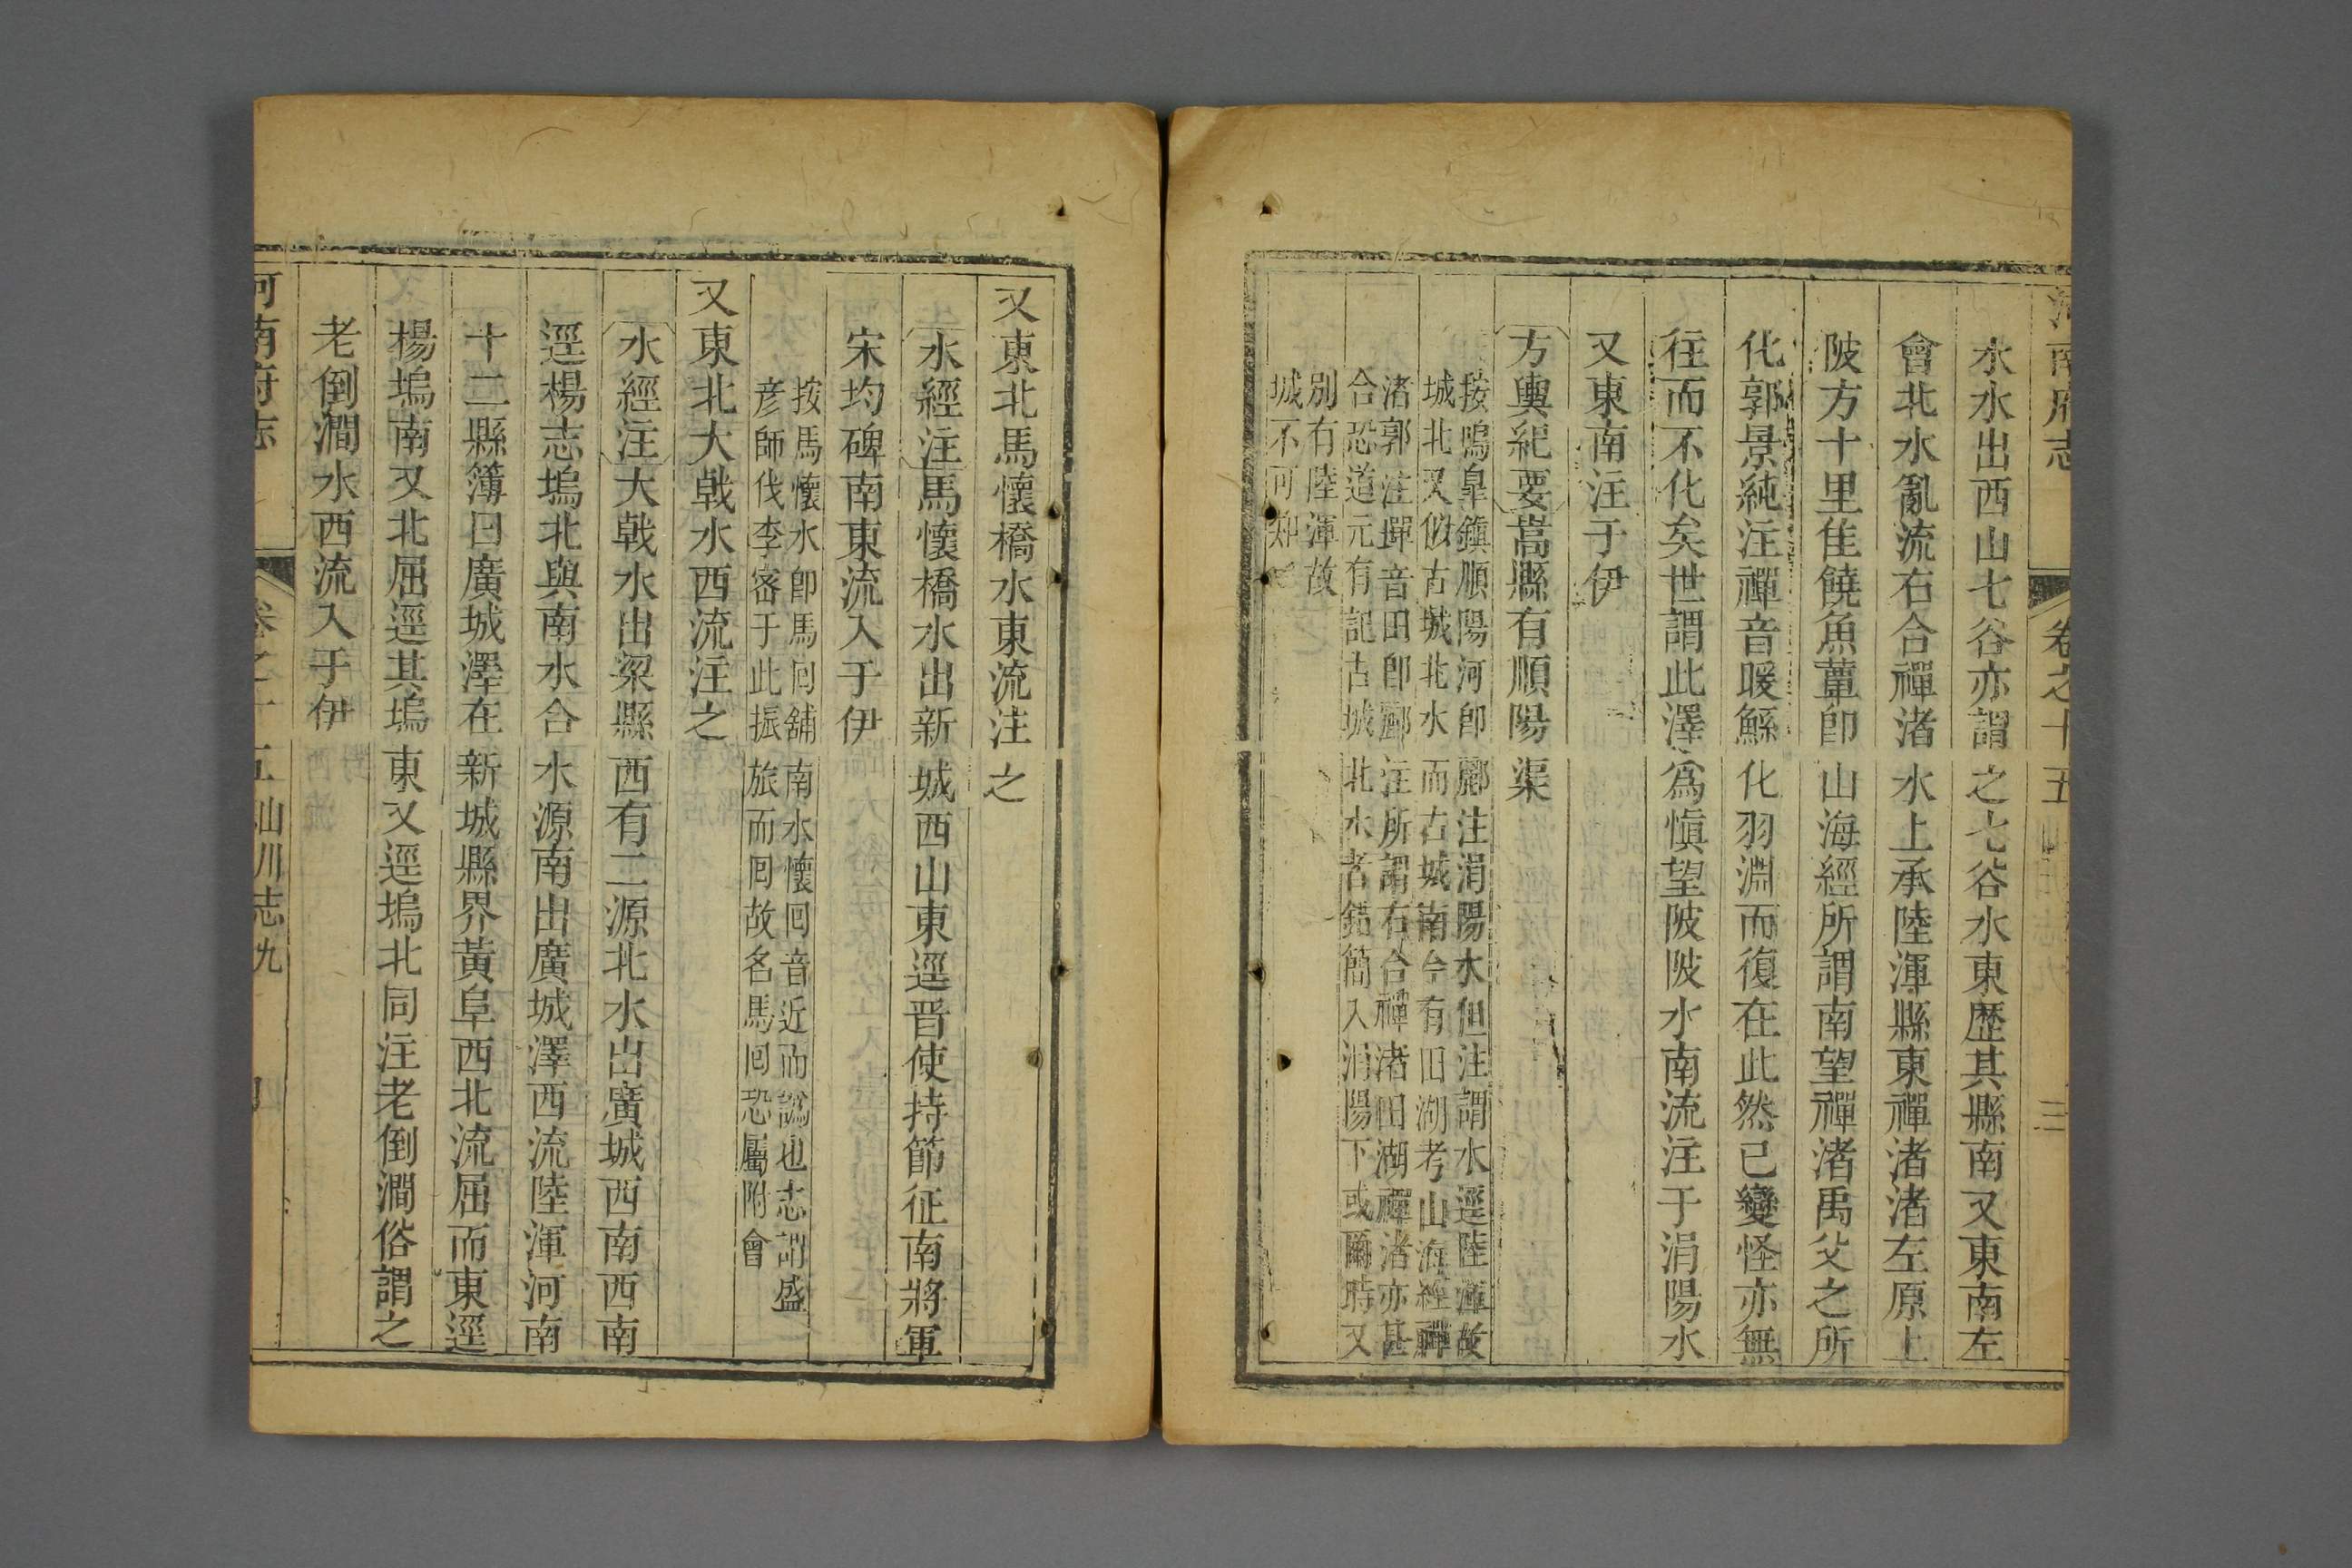 河南府志 卷之十五 山川志九 三
水水出西山七谷亦謂之七谷水東歷其縣南又東南左
會北水亂流右合禪渚水上承陸渾縣東禪渚渚左原上
陂方十里佳饒魚葦卽山海經所謂南望禪渚禹父之所
化郭景純注禪音暖鯀化羽淵而復在此然已變怪亦無
往而不化矣世謂此澤爲愼望陂陂水南流注于涓陽水
又東南注于伊
方輿紀要嵩縣有順陽渠
按鳴臯鎭順陽河卽酈注涓陽水但注謂水逕陸渾故
城北又似古城北水而古城南今有田湖考山海經禪
渚郭注墠音田卽酈注所謂右合禪渚田湖禪渚亦甚
合恐道元有記古城北水者錯簡入涓陽下或爾時又
別有陸渾故
城不可知
又東北馬懷橋水東流注之
水經注馬懷橋水出新城西山東逕晋使持節征南將軍
宋均碑南東流入于伊
按馬懷水卽馬囘舖南水懷囘音近而譌也志謂盛
彦師伐李密于此振旅而囘故名馬囘恐屬附會
又東北大戟水西流注之
水經注大戟水出梁縣西有二源北水出廣城西南西南
逕楊志塢北與南水合水源南出廣城澤西流陸渾河南
十二縣簿曰廣城澤在新城縣界黃阜西北流屈而東逕
楊塢南又北屈逕其塢東又逕塢北同注老倒澗俗謂之
老倒澗水西流入于伊
河南府志 卷之十五 山川志九